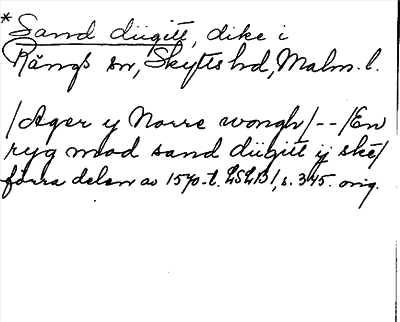 * Sand diigitt, dike i
Rängs sn, Skytts hd, Malm. l.
/Ager y Norre wongh/--/En
ryg mod sand diigitt ij ske/
förra delen av 1570-t. LSLB1, s. 345. orig.